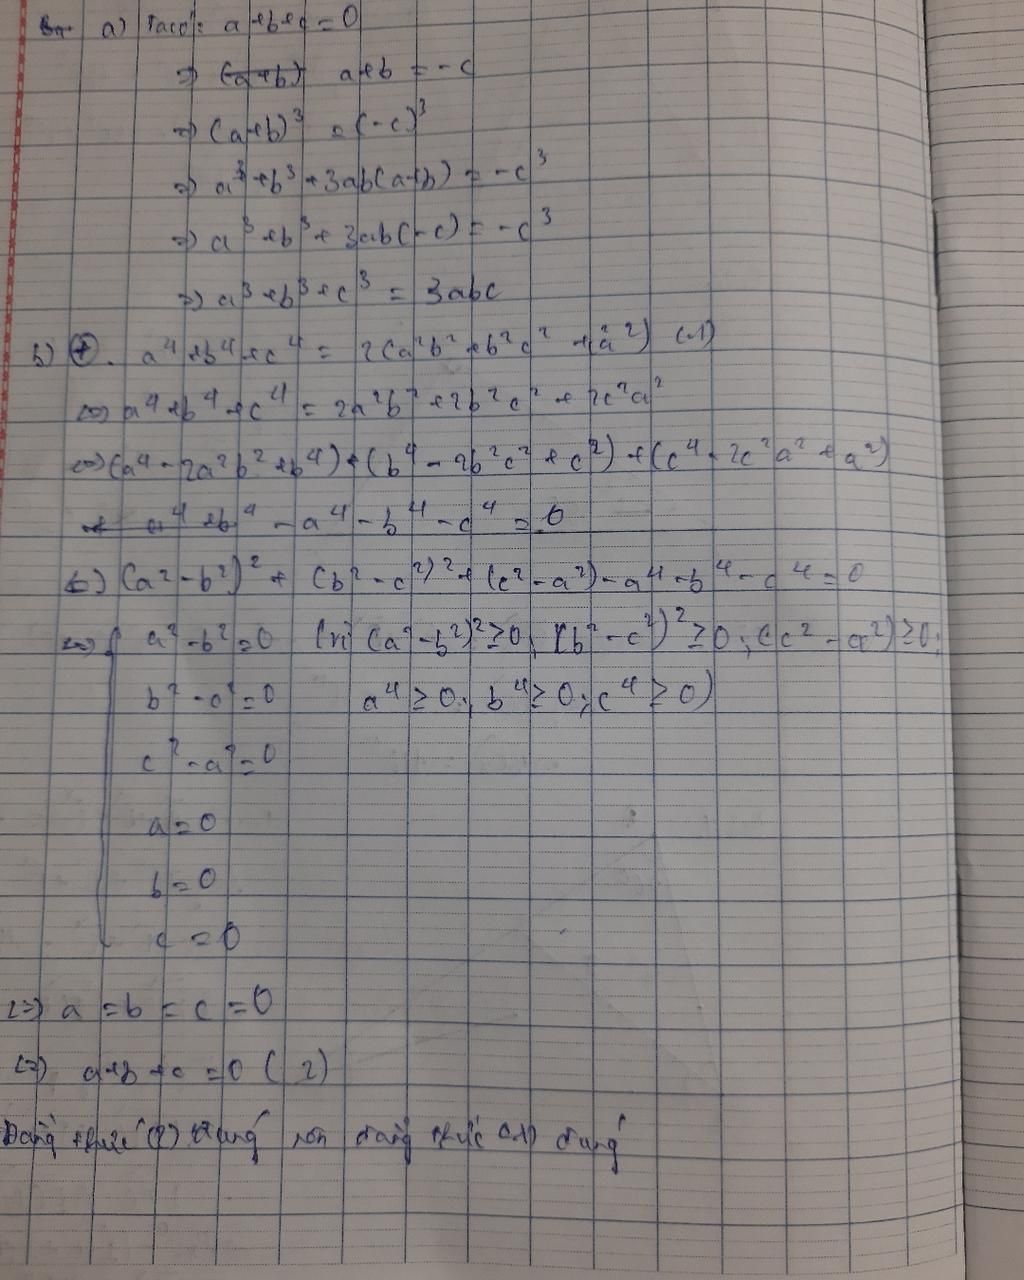 a) Ta có: a+b+c=0
=> (a+b) a+b = -c
=> (a+b)³ = (-c)³
=> a³+b³+3ab(a+b) = -c³
=> a³+b³+3ab(-c) = -c³
=> a³+b³+c³ = 3abc
b) (+). a⁴+b⁴+c⁴ = 2(a²b²+b²c²+ a²) (1)
<=> a⁴+b⁴+c⁴ = 2a²b²+2b²c²+2c²a²
<=> (a⁴-2a²b²+b⁴)+(b⁴-2b²c²+c²)+(c⁴-2c²a²+a²)
+ a⁴+b⁴ -a⁴-b⁴-c⁴=0
<=> (a²-b²)²+(b²-c²)²+(c²-a²)-a⁴-b⁴-c⁴=0
<=> { a²-b²=0 (vì (a²-b²)²≥0; (b²-c²)²≥0; (c²-a²)≥0;
b²-c²=0 a⁴≥0; b⁴≥0; c⁴≥0)
c²-a²=0
a=0
b=0
c=0
<=> a=b=c=0
<=> a+b+c=0 (2)
Đẳng thức (2) đúng nên đẳng thức (1) đúng